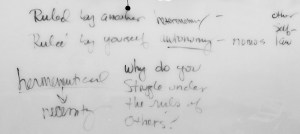 Ruled by another - other
self-
Ruled by yourself Autonomy - nomos law
hermeneutical
why do you
struggle under
the rule of